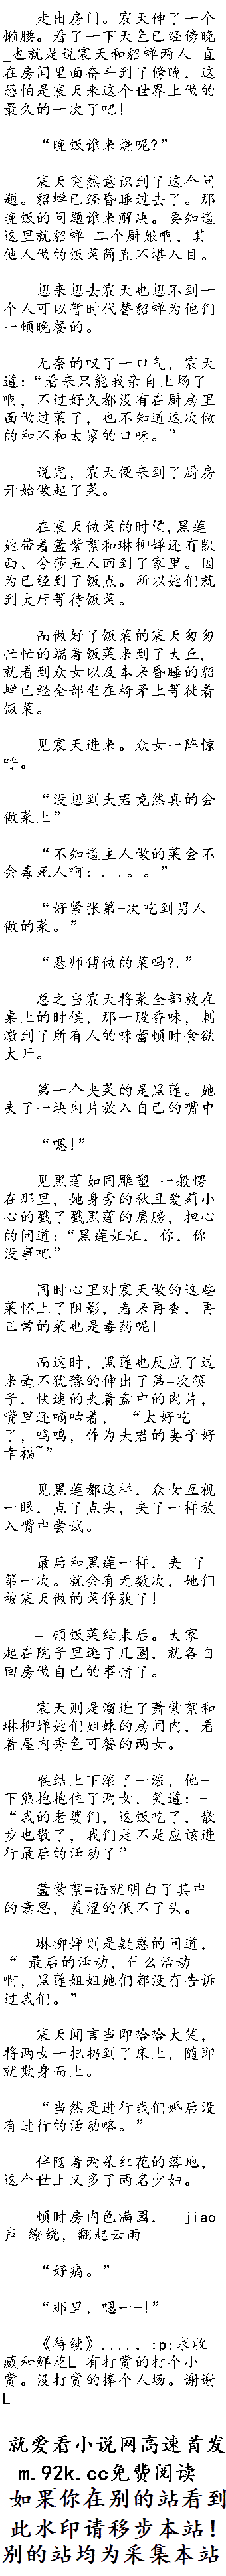 走出房门。宸天伸了一个
懒腰。看了一下天色已经傍晚
_也就是说宸天和貂蝉两人-直
在房间里面奋斗到了傍晚，这
恐怕是宸天来这个世界上做的
最久的一次了吧！
“晚饭谁来烧呢?”
宸天突然意识到了这个问
题。貂蝉已经昏睡过去了。那
晚饭的问题谁来解决。要知道
这里就貂蝉-二个厨娘啊，其
他人做的饭菜简直不堪入目。
想来想去宸天也想不到一
个人可以暂时代替貂蝉为他们
一顿晚餐的。
无奈的叹了一口气，宸天
道：“看来只能我亲自上场了
啊，不过好久都没有在厨房里
面做过菜了，也不知道这次做
的和不和太家的口味。”
说完，宸天便来到了厨房
开始做起了菜。
在宸天做菜的时候,黑莲
她带着藎紫絮和琳柳婵还有凯
西、兮莎五人回到了家里。因
为已经到了饭点。所以她们就
到大厅等待饭菜。
而做好了饭菜的宸天匆匆
忙忙的端着饭菜来到了大丘，
就看到众女以及本来昏睡的貂
蝉已经全部坐在椅矛上等徒着
饭菜。
见宸天进来。众女一阵惊
呼。
“没想到夫君竟然真的会
做菜上”
“不知道主人做的菜会不
会毒死人啊：...。。”
“好紧张第-次吃到男人
做的菜。”
“悬师傅做的菜吗?,”
总之当宸天将菜全部放在
桌上的时候，那一股香味，刺
激到了所有人的味蕾顿时食欲
大开。
第一个夹菜的是黑莲。她
夹了一块肉片放入自己的嘴中
“嗯!”
见黑莲如同雕塑-一般愣
在那里，她身旁的秋且爱莉小
心的戳了戳黑莲的肩膀，担心
的问道：“黑莲姐姐，你，你
没事吧”
同时心里对宸天做的这些
菜怀上了阻影，看来再香，再
正常的菜也是毒药呢l
而这时，黑莲也反应了过
来毫不犹豫的伸出了第=次筷
子，快速的夹着盘中的肉片，
嘴里还嘀咕着， “太好吃
了，呜呜，作为夫君的妻子好
幸福~”
见黑莲都这样，众女互视
一眼，点了点头，夹了一样放
入嘴中尝试。
最后和黑莲一样，夹 了
第一次。就会有无数次，她们
被宸天做的菜俘获了！
= 顿饭菜结束后。大家-
起在院子里逛了几圈，就各自
回房做自己的事情了。
宸天则是溜进了萧紫絮和
琳柳婵她们姐妹的房间内，看
着屋内秀色可餐的两女。
喉结上下滚了一滚，他一
下熊抱抱住了两女，笑道：-
“我的老婆们，这饭吃了，散
步也散了，我们是不是应该进
行最后的活动了”
藎紫絮=语就明白了其中
的意思，羞涩的低不了头。
琳柳婵则是疑惑的问道，
“ 最后的活动，什么活动
啊，黑莲姐姐她们都没有告诉
过我们。”
宸天闻言当即哈哈大笑，
将两女一把扔到了床上，随即
就欺身而上。
“当然是进行我们婚后没
有进行的活动略。”
伴随着两朵红花的落地，
这个世上又多了两名少妇。
顷时房内色满园， jiao
声 缭绕，翻起云雨
“好痛。”
“那里，嗯一-!”
《待续》....，:p:求收
藏和鲜花L 有打赏的打个小
赏。没打赏的捧个人场。谢谢
L
就爱看小说网高速首发
m.92k.cc免费阅读
如果你在别的站看到
此水印请移步本站！
别的站均为采集本站